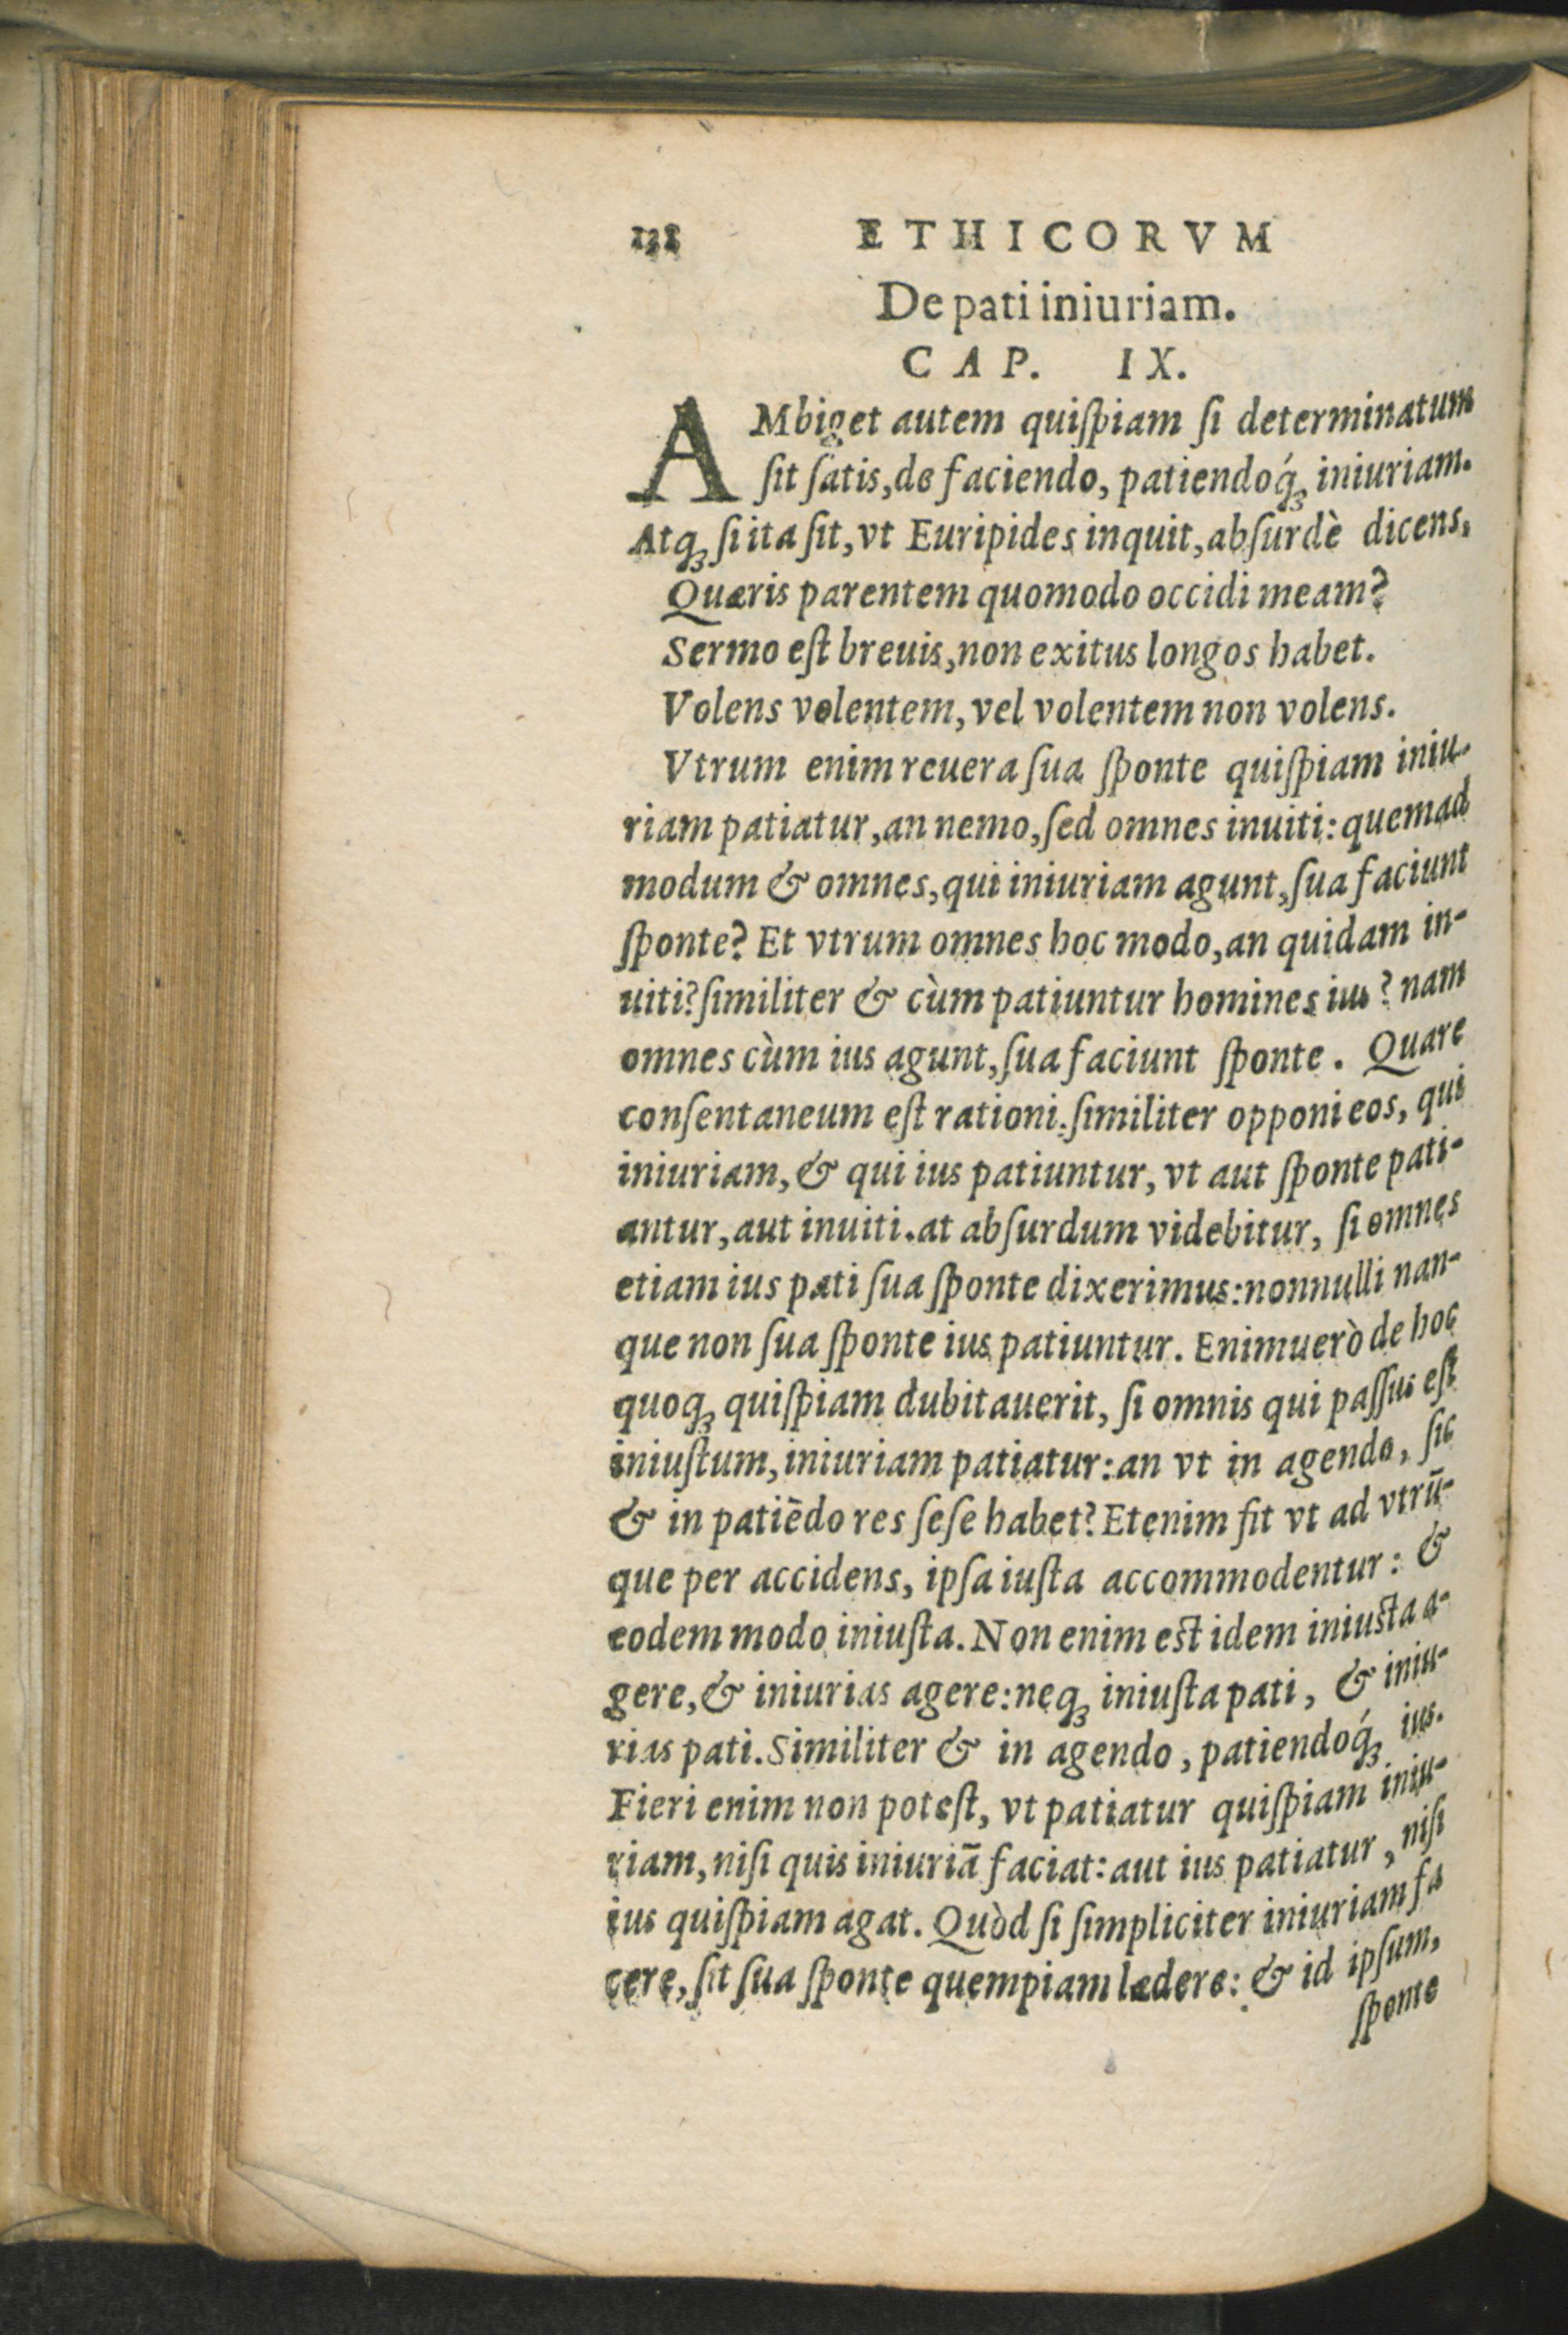 138 ETHICORVM
De pati iniuriam.
CAP. IX.
AMbiget autem quiſpiam ſi determinatum
ſit ſatis, de faciendo, patiendoq́ꝫ iniuriam.
Atqꝫ ſi ita ſit, vt Euripides inquit, abſurdè dicens,
Quæris parentem quomodo occidi meam?
Sermo eſt breuis, non exitus longos habet.
Volens volentem, vel volentem non volens.
Vtrum enim reuera ſua ſponte quiſpiam iniu-
riam patiatur, an nemo, ſed omnes inuiti: quemad
modum & omnes, qui iniuriam agunt, ſua faciunt
ſponte? Et vtrum omnes hoc modo, an quidam in-
uiti? ſimiliter & cùm patiuntur homines ius? nam
omnes cùm ius agunt, ſua faciunt ſponte. Quare
conſentaneum eſt rationi. ſimiliter opponi eos, qui
iniuriam, & qui ius patiuntur, vt aut ſponte pati-
antur, aut inuiti. at abſurdum videbitur, ſi omnes
etiam ius pati ſua ſponte dixerimus: nonnulli nan-
que non ſua ſponte ius patiuntur. Enimuerò de hoc
quoqꝫ quiſpiam dubitauerit, ſi omnis qui paſſus eſt
iniuſtum, iniuriam patiatur: an vt in agendo, ſic
& in patiēdo res ſeſe habet? Etenim fit vt ad vtrū-
que per accidens, ipſa iuſta accommodentur: &
eodem modo iniuſta. Non enim eſt idem iniuſta a-
gere, & iniurias agere: neqꝫ iniuſta pati, & iniu-
rias pati. Similiter & in agendo, patiendoq́ꝫ ius.
Fieri enim non poteſt, vt patiatur quiſpiam iniu-
riam, niſi quis iniuriā faciat: aut ius patiatur, niſi
ius quiſpiam agat. Quòd ſi ſimpliciter iniuriam fa
cere, ſit ſua ſponte quempiam lædere: & id ipſum,
ſponte